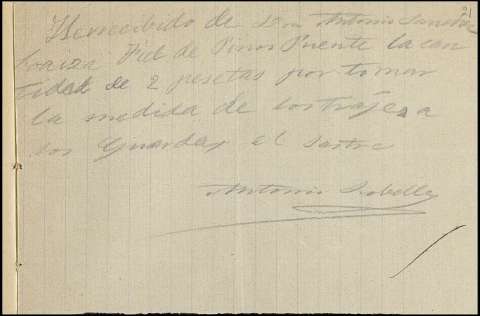 21
He recibido de Don Antonio Sanchez
Loaiza Fiel de Pinos Puente la can
tidad de 2 pesetas por tomar
la medida de los trajes a
los Guardas el sastre
Antonio